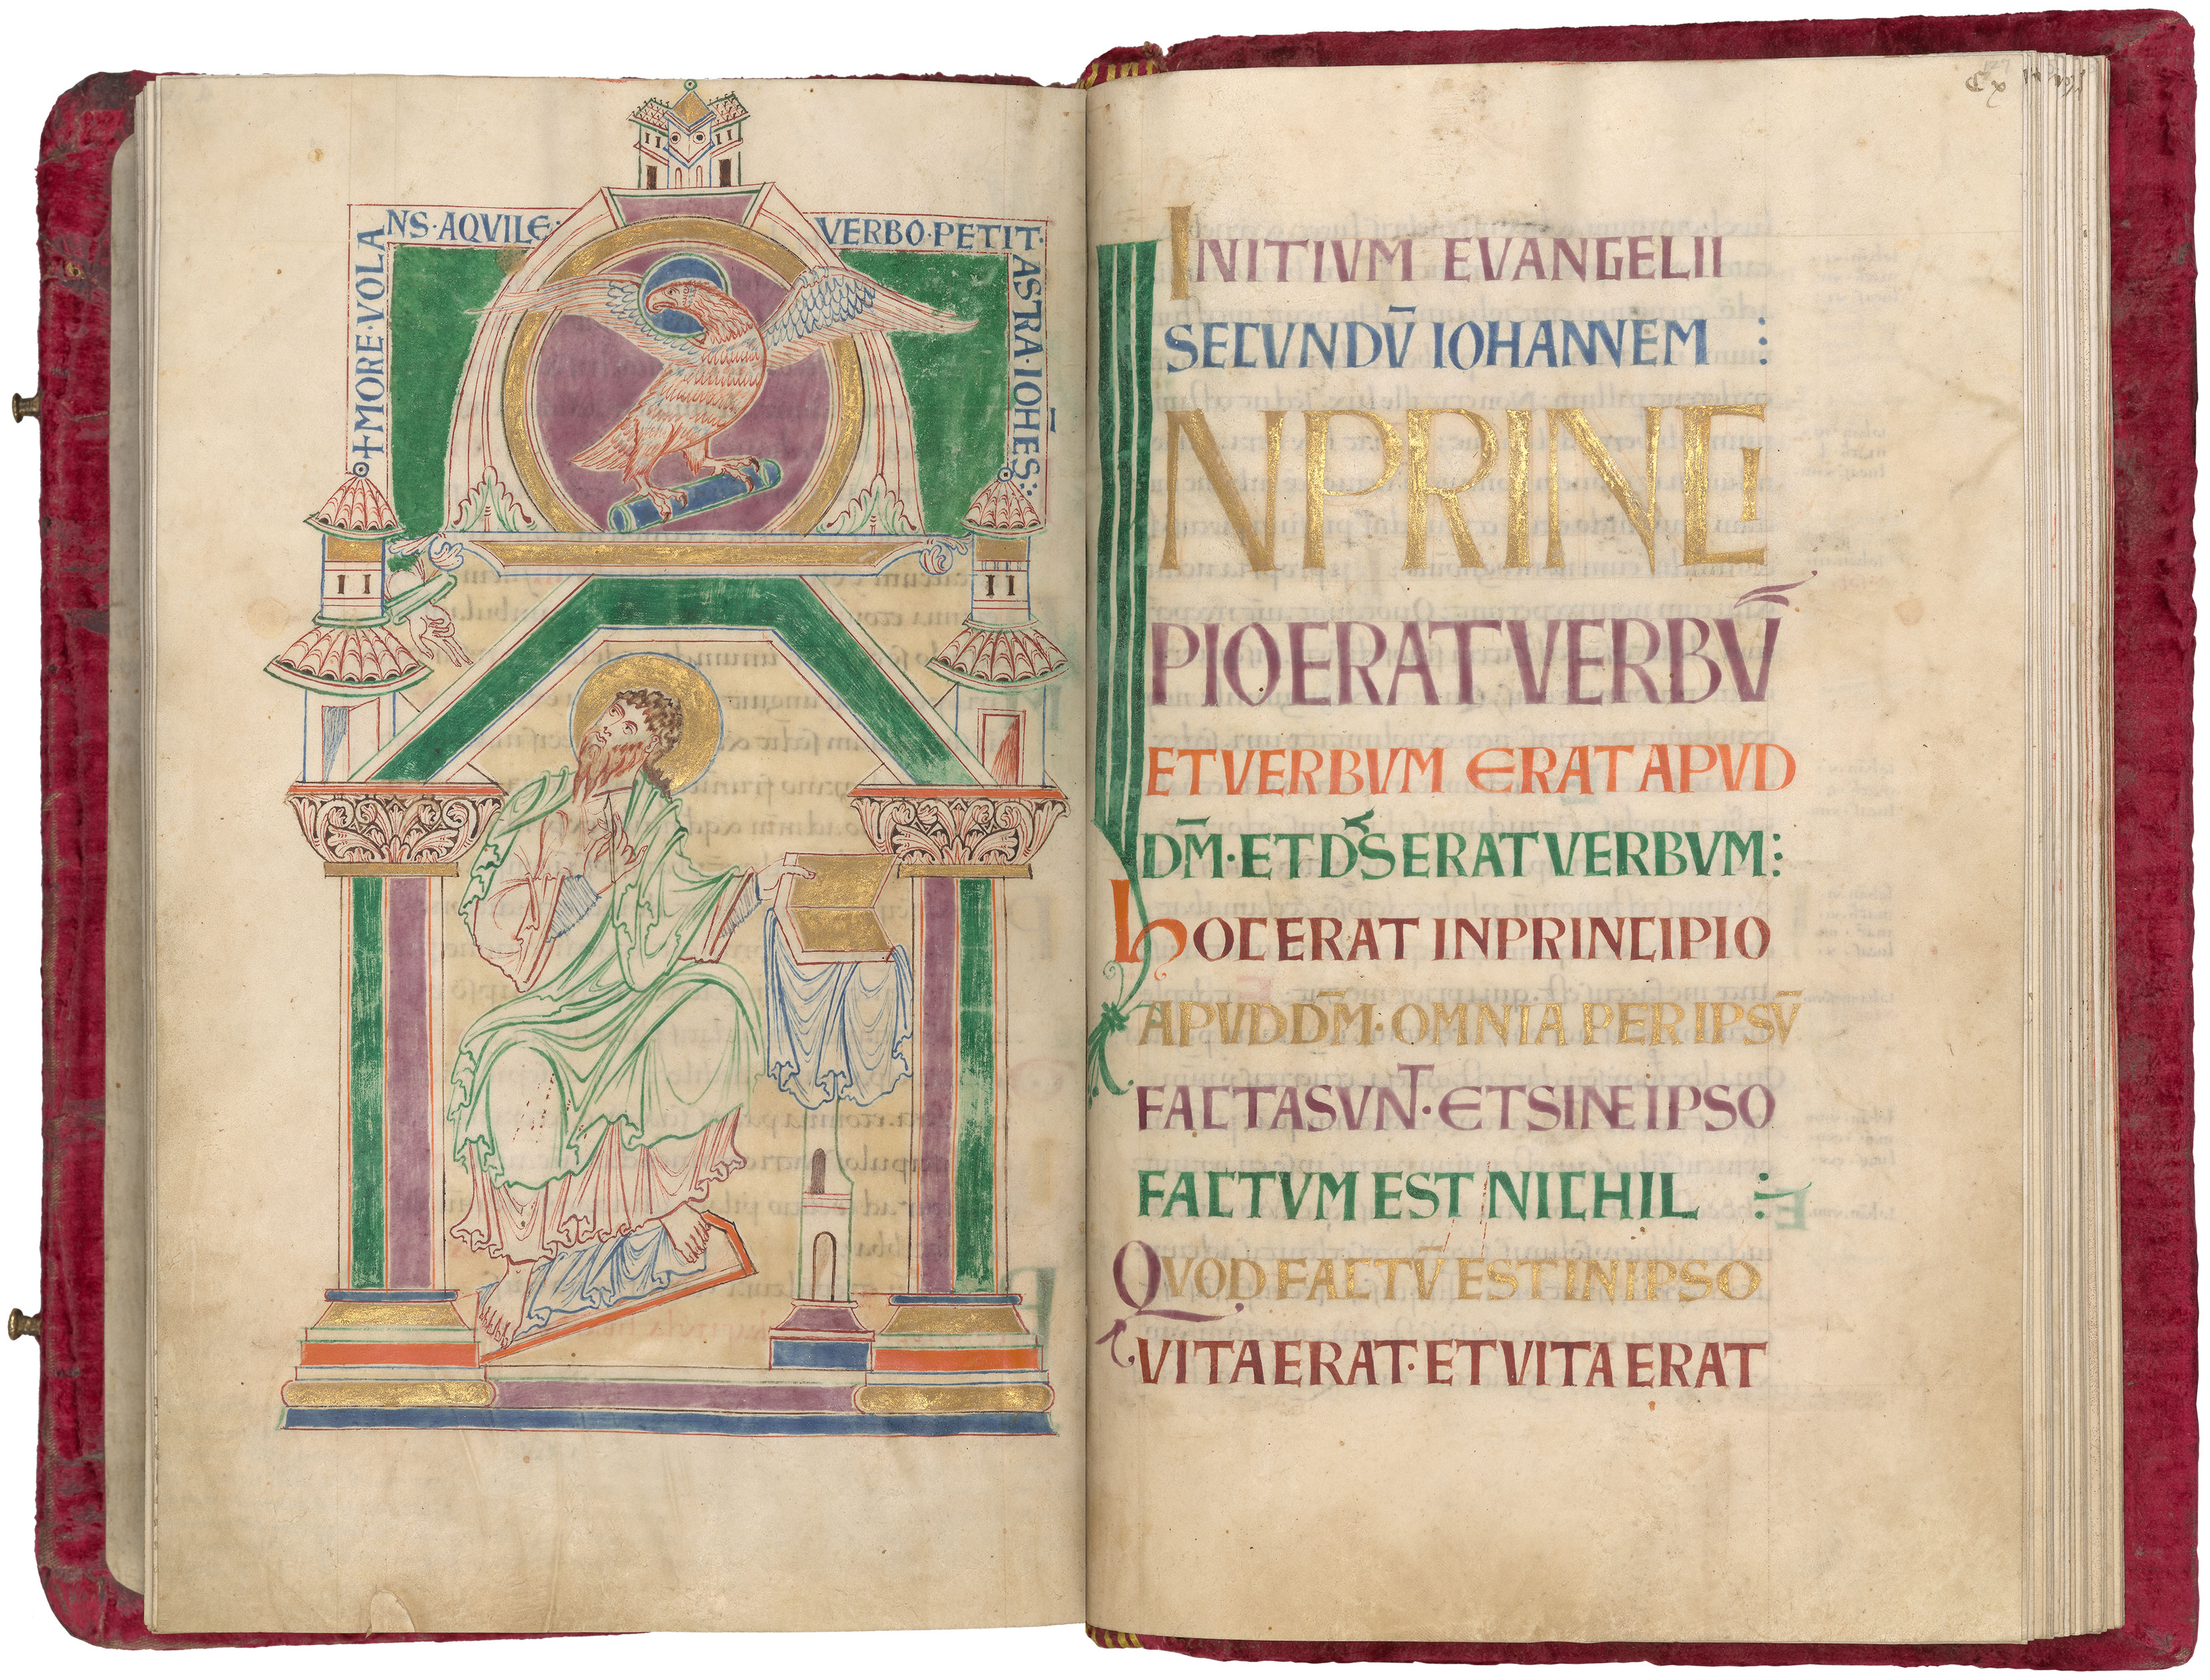 + MORE · VOLANS · AQVILE · VERBO · PETIT · ASTRA · IOH̄ES :
INITIVM EVANGELII
SECVNDV̄ IOHANNEM :
IN PRINCI
PIO ERAT VERBV̄
ET VERBVM ERAT APVD
DM̄ · ET DS̄ ERAT VERBVM :
hOC ERAT IN PRINCIPIO
APVD DM̄ · OMNIA PER IPSV̄
FACTA SVNT · ET SINE IPSO
FACTVM EST NICHIL :
QVOD FACTV̄ EST IN IPSO
VITA ERAT · ET VITA ERAT